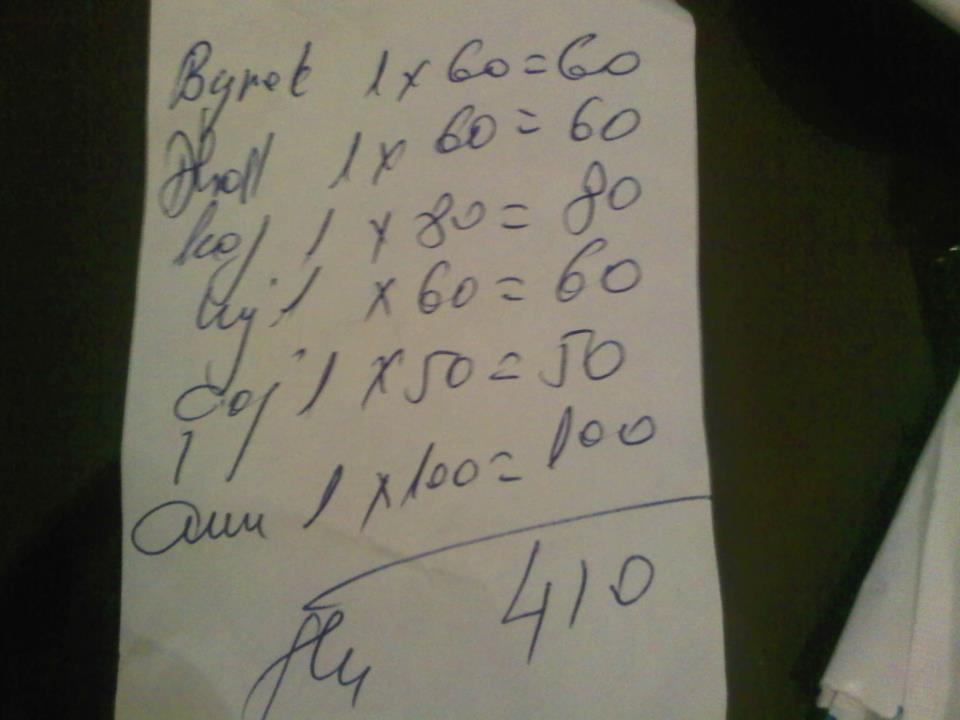 Byrek 1 x 60 = 60
1 x 60 = 60
koj 1 x 80 = 80
Uj 1 x 60 = 60
Caj 1 x 50 = 50
1 x 100 = 100
410